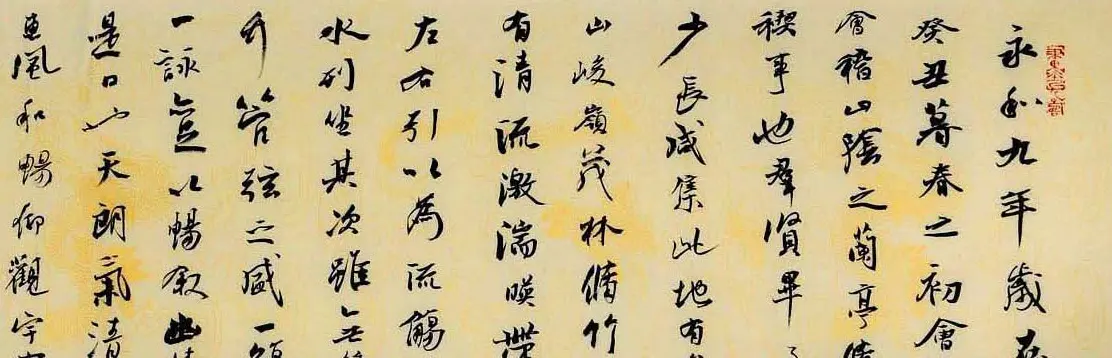 永和九年歲
癸丑暮春之初會
會稽山陰之蘭亭
禊事也羣賢畢
少長咸集此地有
山峻嶺茂林脩竹
有清流激湍暎帶
左右引以為流觴
水列坐其次雖無
竹管弦之盛一觴
一詠亦足以暢叙幽
是日也天朗氣清
惠風和暢仰觀宇